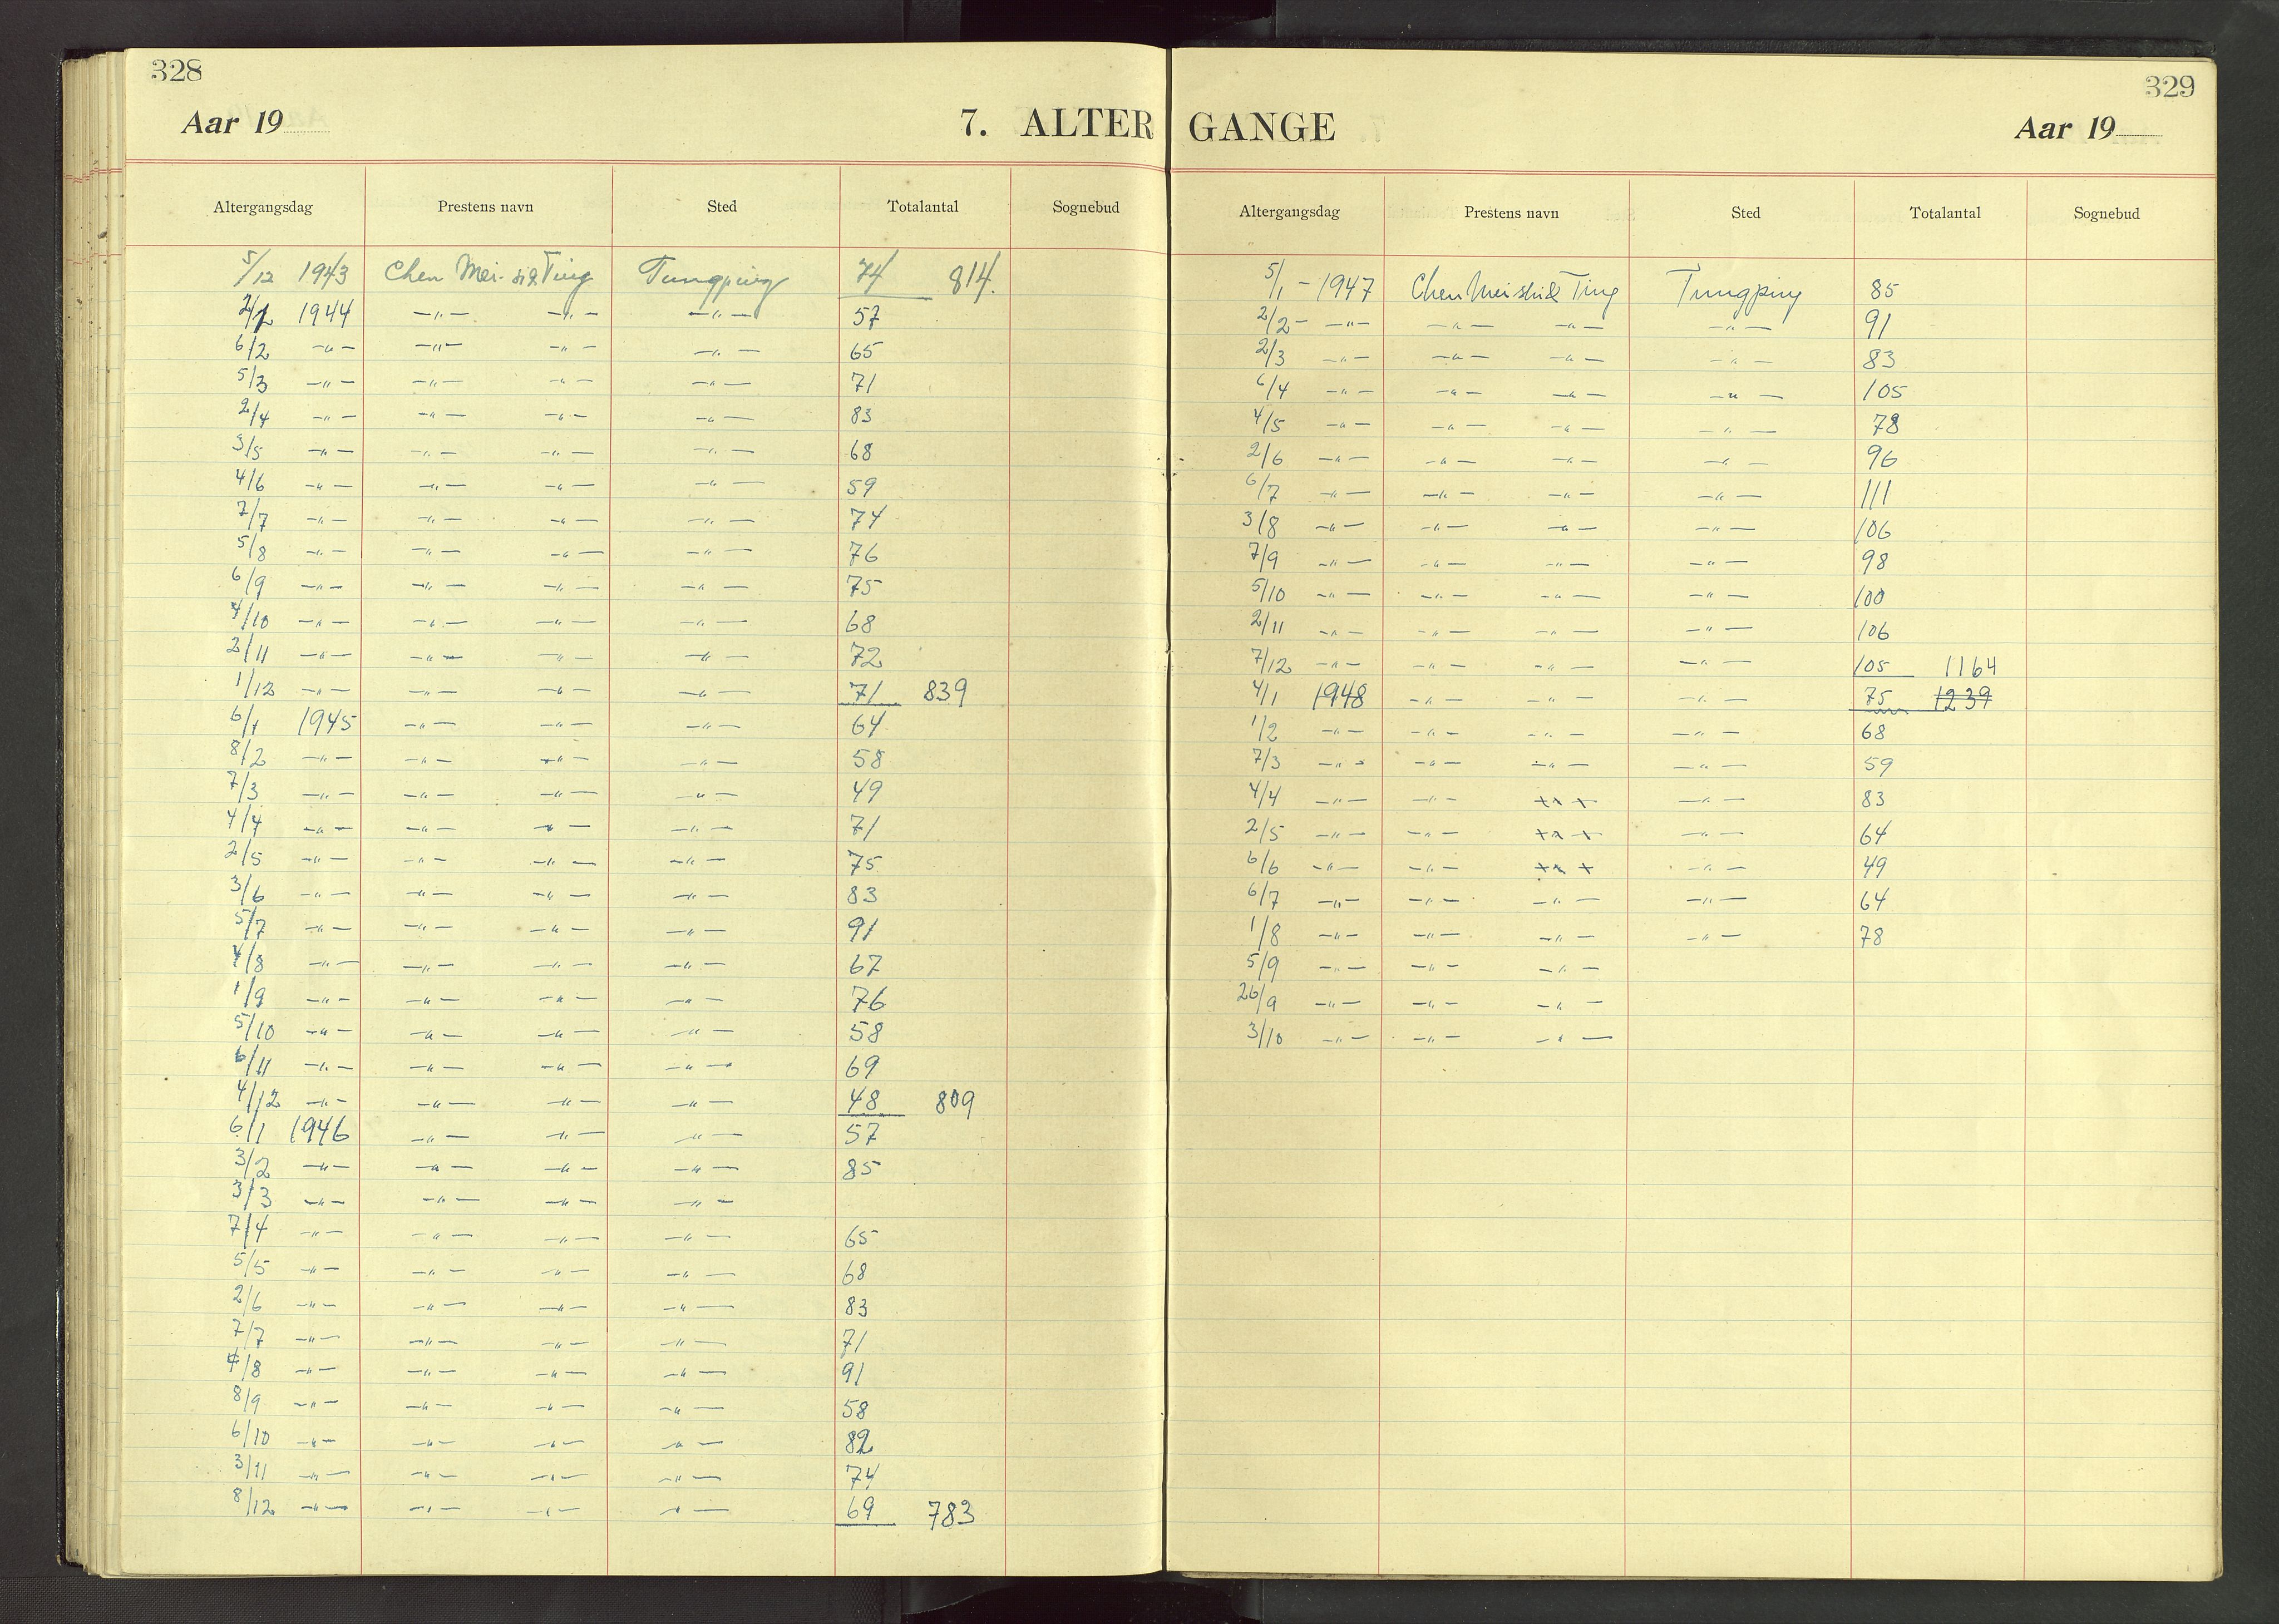 328
Aar 19
7. ALTER
Altergangsdag Prestens navn Sted Totalantal Sognebud
5/12 1943 Chen Mei-sï Ting Tungping 74 814.
2/1 1944 -"- -"- -"- 57
6/2 -"- -"- -"- -"- 65
5/3 -"- -"- -"- -"- 71
2/4 -"- -"- -"- -"- 83
3/5 -"- -"- -"- -"- 68
4/6 -"- -"- -"- -"- 59
7/7 -"- -"- -"- -"- 74
5/8 -"- -"- -"- -"- 76
6/9 -"- -"- -"- -"- 75
4/10 -"- -"- -"- -"- 68
2/11 -"- -"- -"- -"- 72
1/12 -"- -"- -"- -"- 71 839
6/1 1945 -"- -"- -"- 64
8/2 -"- -"- -"- -"- 58
7/3 -"- -"- -"- -"- 49
4/4 -"- -"- -"- -"- 71
2/5 -"- -"- -"- -"- 75
3/6 -"- -"- -"- -"- 83
5/7 -"- -"- -"- -"- 91
4/8 -"- -"- -"- -"- 67
1/9 -"- -"- -"- -"- 76
5/10 -"- -"- -"- -"- 58
6/11 -"- -"- -"- -"- 69
4/12 -"- -"- -"- -"- 48 809
6/1 1946 -"- -"- -"- 57
3/2 -"- -"- -"- -"- 85
3/3 -"- -"- -"- -"-
7/4 -"- -"- -"- -"- 65
5/5 -"- -"- -"- -"- 68
2/6 -"- -"- -"- -"- 83
7/7 -"- -"- -"- -"- 71
4/8 -"- -"- -"- -"- 91
8/9 -"- -"- -"- -"- 58
6/10 -"- -"- -"- -"- 82
3/11 -"- -"- -"- -"- 74
8/12 -"- -"- -"- -"- 69 783
329
GANGE
Aar 19
Altergangsdag Prestens navn Sted Totalantal Sognebud
5/1 - 1947 Chen Mei shih Ting Tungping 85
2/2 - -"- -"- -"- -"- 91
2/3 -"- -"- -"- -"- 83
6/4 -"- -"- -"- -"- 105
4/5 -"- -"- -"- -"- 78
2/6 -"- -"- -"- -"- 96
6/7 -"- -"- -"- -"- 111
3/8 -"- -"- -"- -"- 106
7/9 -"- -"- -"- -"- 98
5/10 -"- -"- -"- -"- 100
2/11 -"- -"- -"- -"- 106
7/12 -"- -"- -"- -"- 105 1164
4/1 1948 -"- -"- -"- 75 1239
1/2 -"- -"- -"- -"- 68
7/3 -"- -"- -"- -"- 59
4/4 -"- -"- xxx -"- 83
2/5 -"- -"- xxx -"- 64
6/6 -"- -"- xxx -"- 49
6/7 -"- -"- -"- -"- 64
1/8 -"- -"- -"- -"- 78
5/9 -"- -"- -"-
26/9 -"- -"- -"-
3/10 -"- -"- -"-